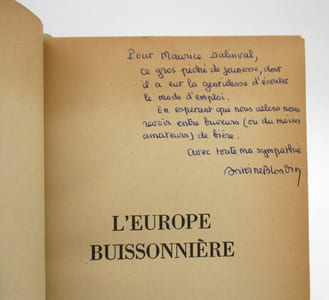 Pour Maurice Dalinval,
ce gros péché de jeunesse, dont
il a eu la gentillesse d'écouter
le mode d'emploi.
En espérant que nous allons nous
revoir entre buveurs (ou du moins
amateurs) de bière.
avec toute ma sympathie
Antoine Blondin
L'EUROPE
BUISSONNIÈRE